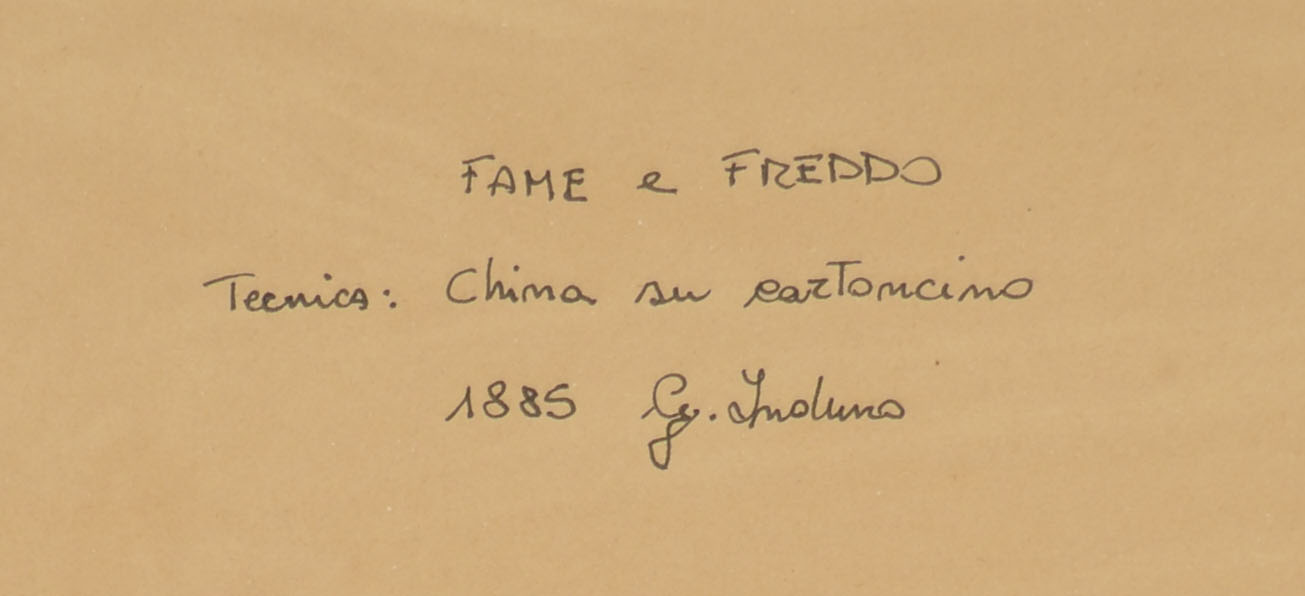 FAME e FREDDO
Tecnica: China su cartoncino
1885 G. Induno